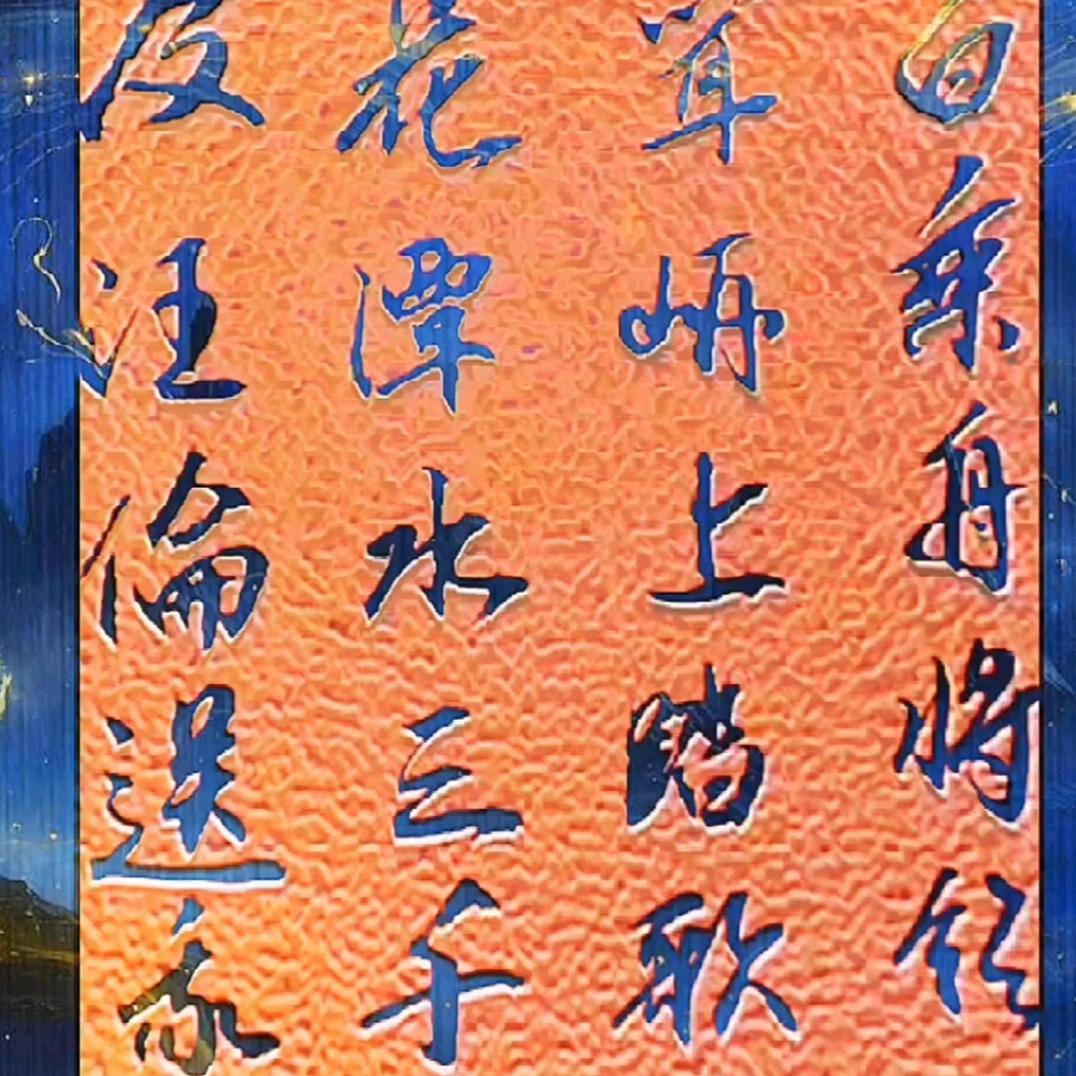 白乘舟將欲
聞岸上踏歌
花潭水三千
及汪倫送我